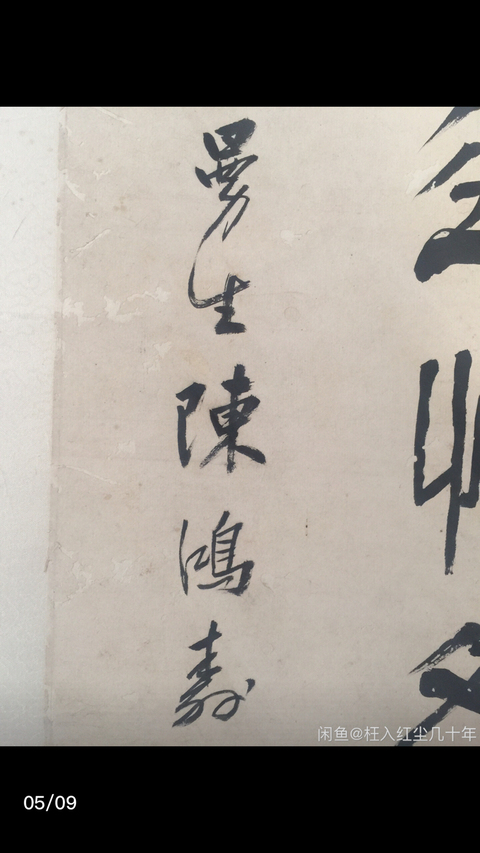 曼生陳鴻壽
闲鱼@枉入红尘几十年
05/09